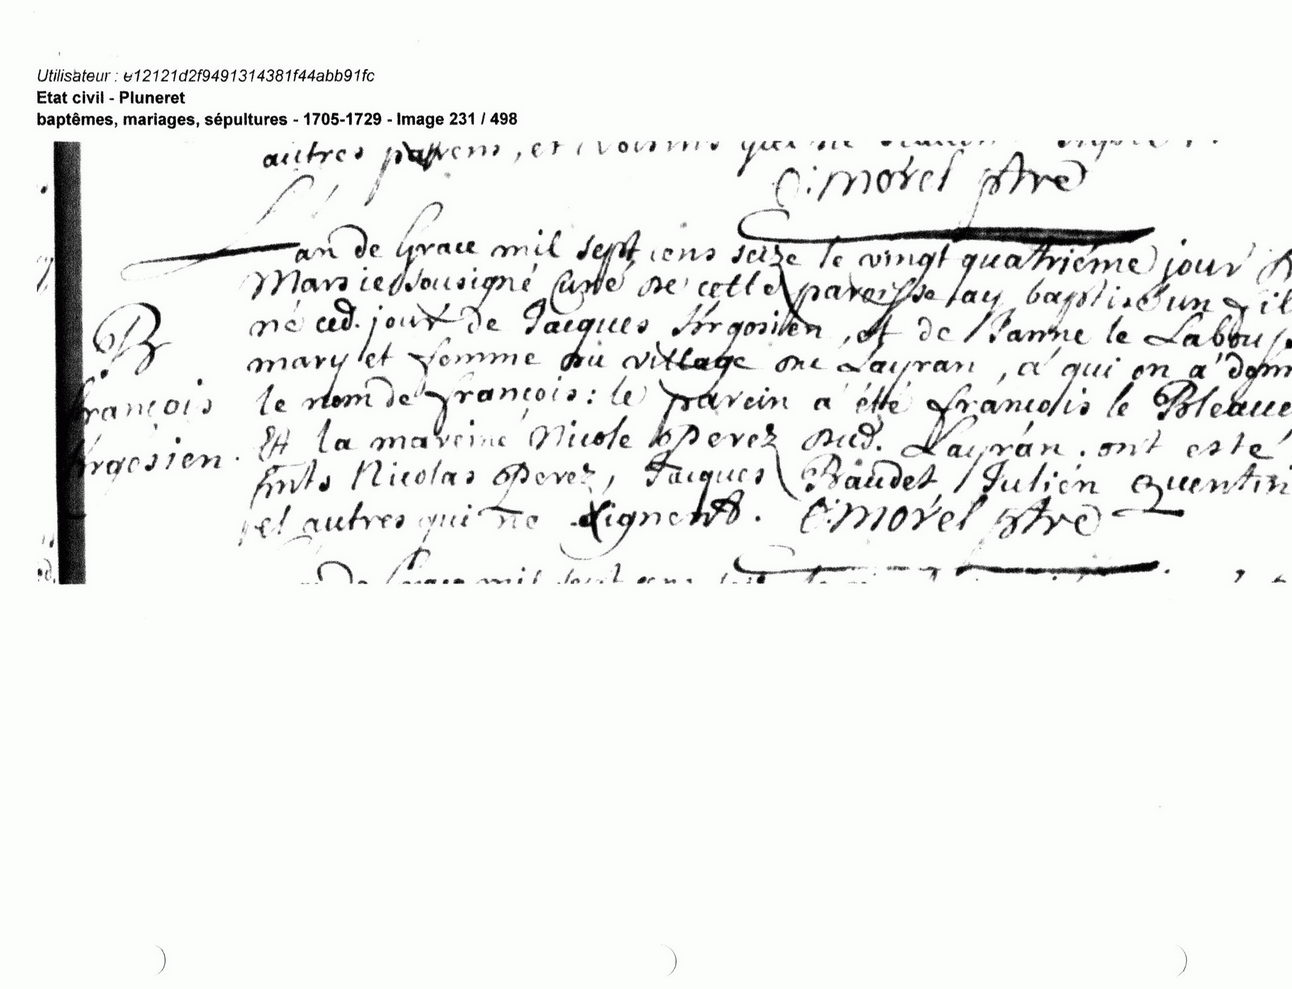 Utilisateur : e12121d2f9491314381f44abb91fc
Etat civil - Pluneret
baptêmes, mariages, sépultures - 1705-1729 - Image 231 / 498
autres parens, et voisins qui ne
C: Morel ptre
L'an de Grace mil sept cens seize le vingt quatriéme jour
Mars je soussigné Curé de cette paroisse ay baptisé un fil
né ced. jour de Jacques Krgosien, et de Janne le Labous
mary et femme du village du Layran, a qui on a donn
B
françois
Krgosien.
le nom de françois: le parein a été françois le Bleave
Et la mareine Nicole Perez dud. Layran. ont esté
pnts Nicolas Perez, Jacques Baudet Julien Quentin
et autres qui ne signent. C: Morel ptre
an de Grace mil sept cens